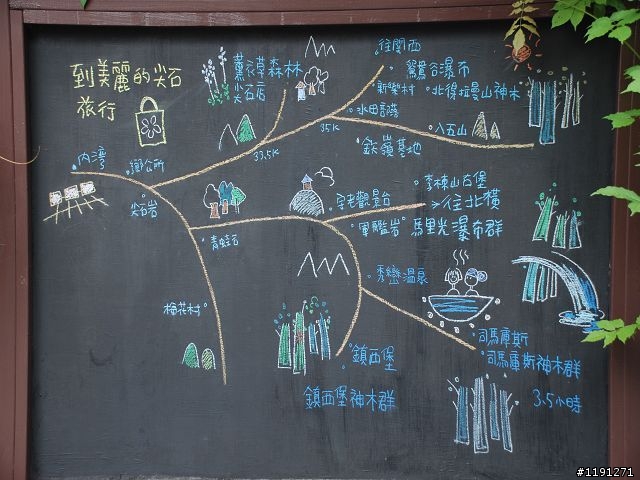 到美麗的尖石
旅行
薰衣草森林
尖石店
往關西
鴛鴦谷瀑布
新樂村
北得拉曼山神木
水田部落
35K
八五山
33.5K
鐵嶺基地
內灣
鄉公所
尖石岩
李崠山古堡
宇老觀景台
往北橫
軍艦岩
馬里光瀑布群
青蛙石
秀巒溫泉
梅花村
司馬庫斯
司馬庫斯神木群
鎮西堡
鎮西堡神木群
3.5小時
#1191271